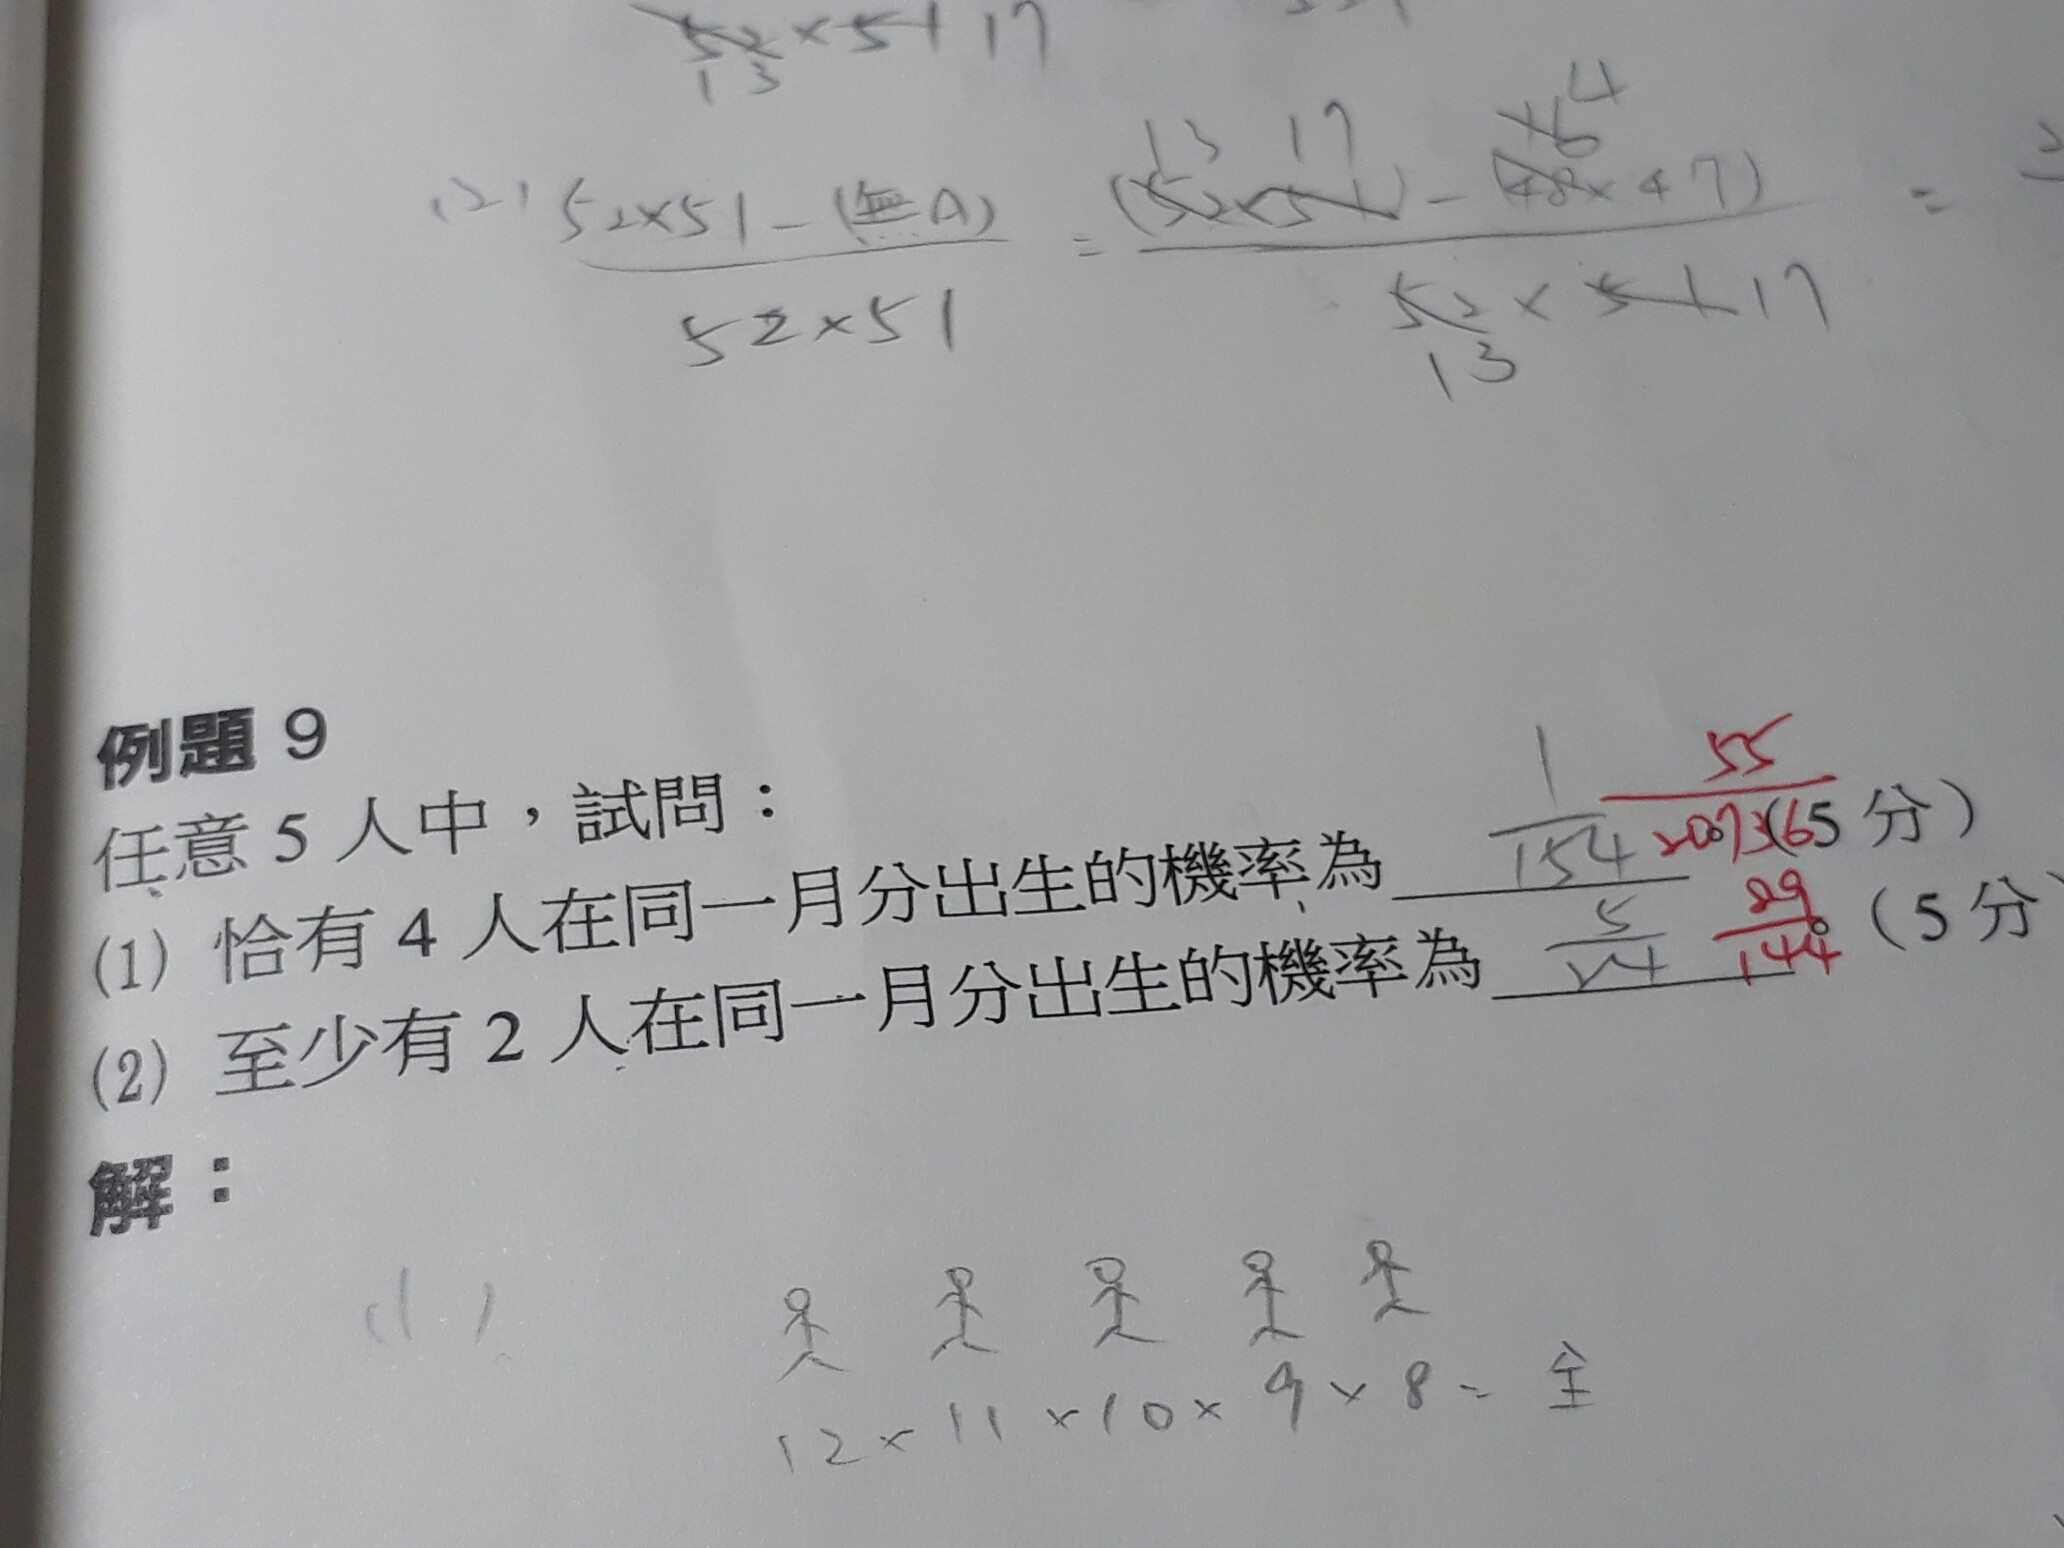 52×51 17
13
13 17 16 4
(2) 52×51-(無A) = (52×51)-(48×47) =
52×51 52×51 17
13
例題 9
任意 5 人中，試問：
(1) 恰有 4 人在同一月分出生的機率為 1/154 55/20736 (5 分)
(2) 至少有 2 人在同一月分出生的機率為 5/24 89/144 。(5 分
解：
(1)
12×11×10×9×8= 全